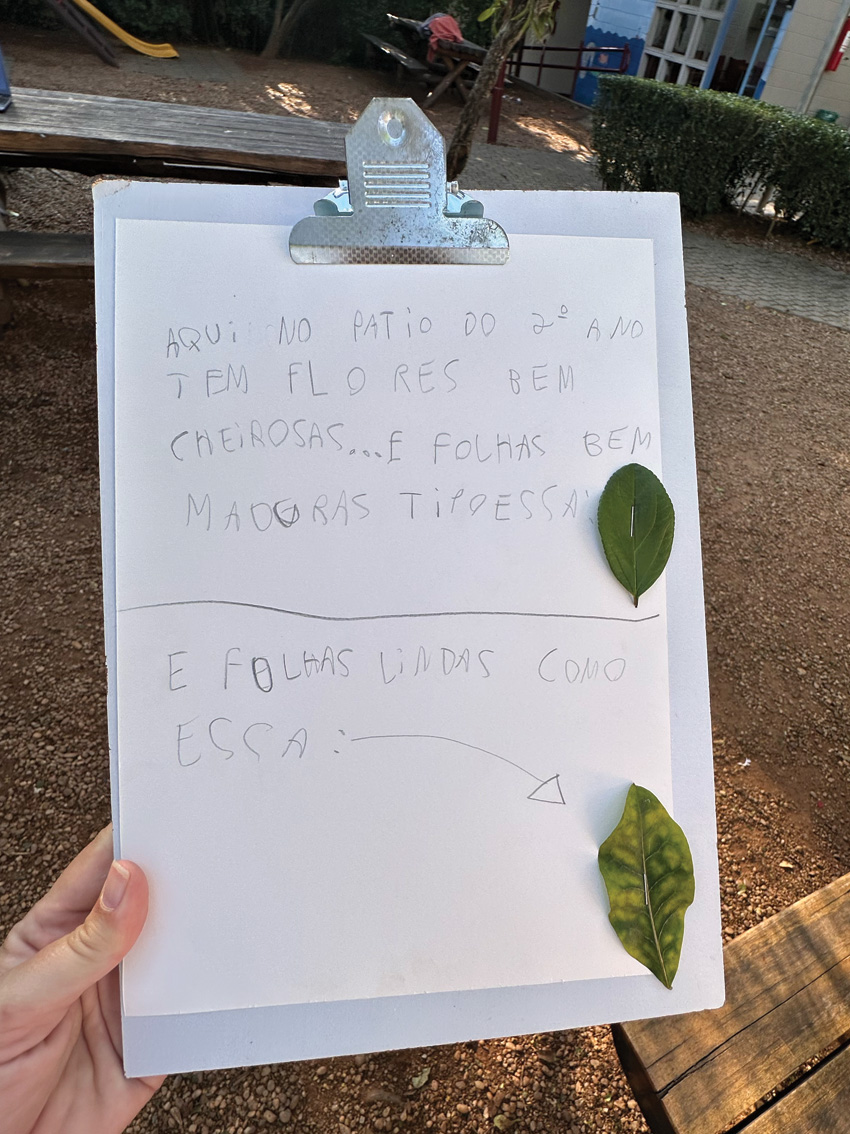 AQUi NO PATiO DO 2º ANO
TEM FLORES BEM
CHEiROSAS...E FOLHAS BEM
MADORAS TiPOESSA:
E FOLHAS LiNDAS COMO
ESSA: